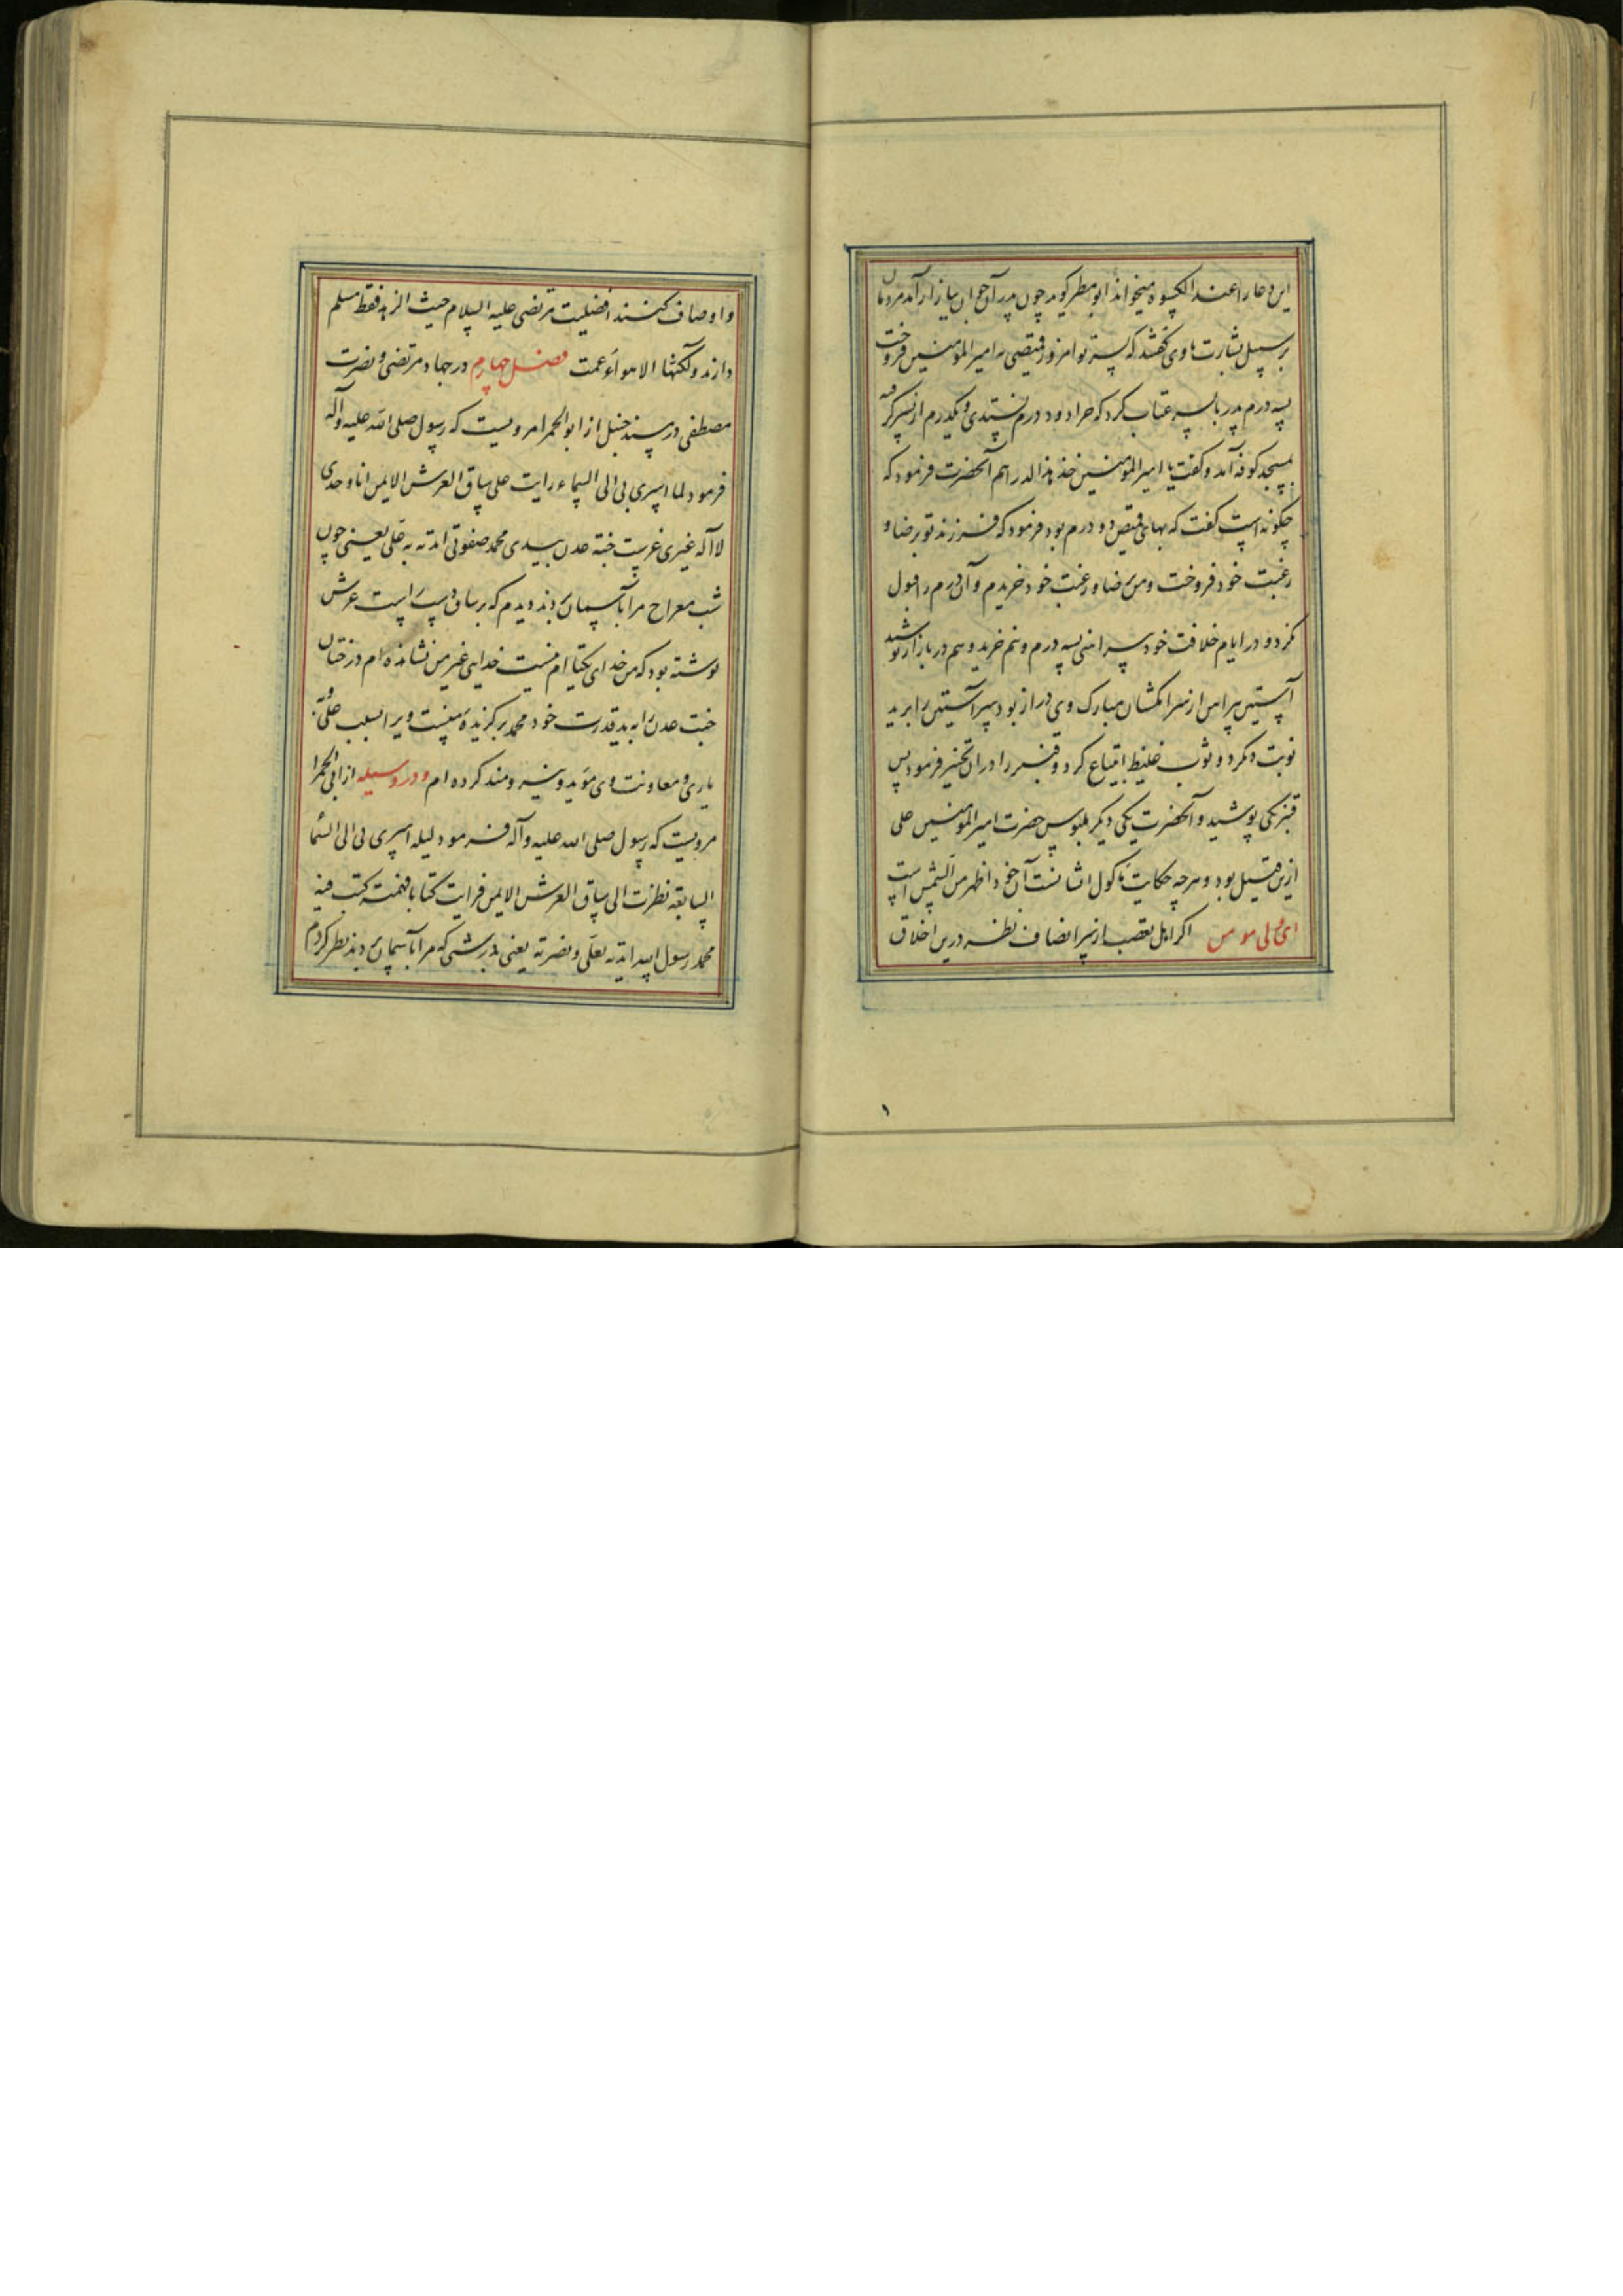 این دعا را عند الکسوه میخواند ابو مطر کوید چون پدر آن جوان ببازار آمد مردمان
بر سبیل بشارت با وی کفتند که پسر تو امروز قمیصی به امیر المؤمنین فروخت
بسه درم پدر با پسر عتاب کرد که چرا دو درم نستدی و یکدرم از پسر کرفته
بمسجد کوفه آمد و کفت یا امیر المؤمنین خذ هذا الدراهم آنحضرت فرمود که
چکونه است کفت که بهای قمیص دو درم بود فرمود که فرزند تو برضا و
رغبت خود فروخت و من برضا و رغبت خود خریدم و آن درم را قبول
نکرد و در ایام خلافت خود پیراهنی بسه درم و نیم خرید و هم در بازار پوشید
آستین پیراهن از سر انکشتان مبارک وی دراز بود سر آستین را برید
نوبت دیکر دو ثوب غلیظ ابتیاع کرد و قنبر را در آن تخییر فرمود پس
قنبر یکی پوشید و آنحضرت یکی دیکر ملبوس حضرت امیر المؤمنین علی
ازین قبیل بود و هر چه حکایت ماکول ایشانست آن خود اظهر من الشمس است
ای ولی مومن اکر اهل تعصب از سر انصاف نظر درین اخلاق
و اوصاف کنند افضلیت مرتضی علیه السلام حیث الزهد فقط مسلم
دارند ولکنها الاهواء عمت فصل چهارم در جهاد مرتضی و نصرت
مصطفی در مسند حنبل از ابو الحمرا مرویست که رسول صلی الله علیه وآله
فرمود لما اسری بی الی السماء رایت علی ساق العرش الایمن انا وحدی
لا اله غیری غرست جنة عدن بیدی محمد صفوتی ایدته به علی یعنی چون
شب معراج مرا بآسمان بردند دیدم که بر ساق دست راست عرش
نوشته بود که من خدای یکتا ام نیست خدایی غیر من نشانده ام درختان
جنت عدن را به ید قدرت خود محمد برکزیده منست ویرا بسبب علی و به
یاری و معاونت وی مؤید و نیرومند کرده ام و در وسیله از ابی الحمرا
مرویست که رسول صلی الله علیه وآله فرمود لیله اسری بی الی السما
السابعه نظرت الی ساق العرش الایمن فرایت کتابا فهمته کتب فیه
محمد رسول الله ایدته بعلی ونصرته یعنی بدرستی که مرا بآسمان بردند نظر کردم